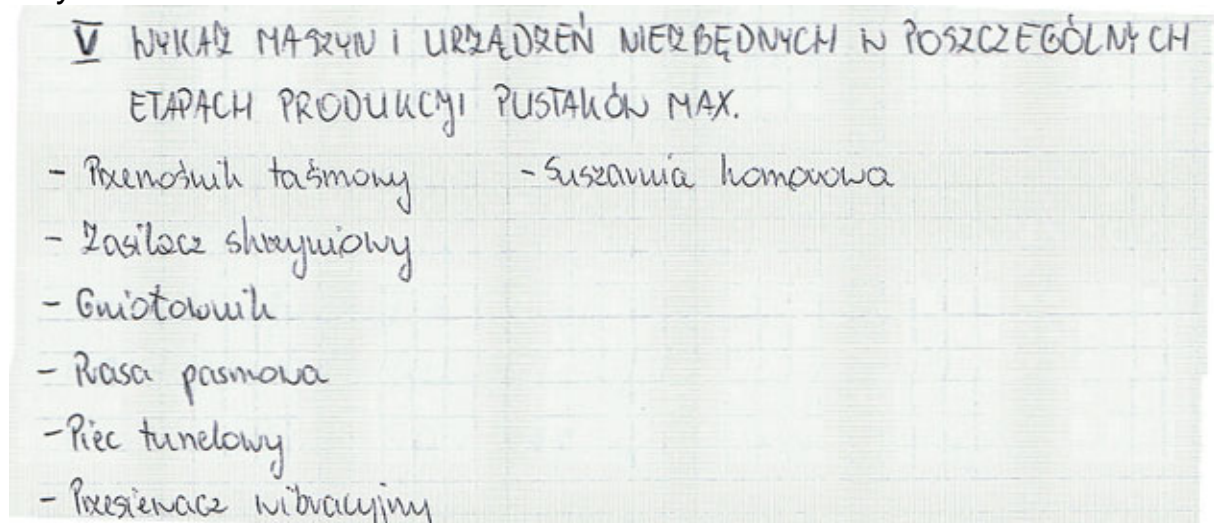 V WYKAZ MASZYN I URZĄDZEŃ NIEZBĘDNYCH W POSZCZEGÓLNYCH
ETAPACH PRODUKCJI PUSTAKÓW MAX.
- Przenośnik taśmowy - Suszarnia komorowa
- Zasilacz skrzyniowy
- Gniotownik
- Prasa pasmowa
- Piec tunelowy
- Przesiewacz wibracyjny